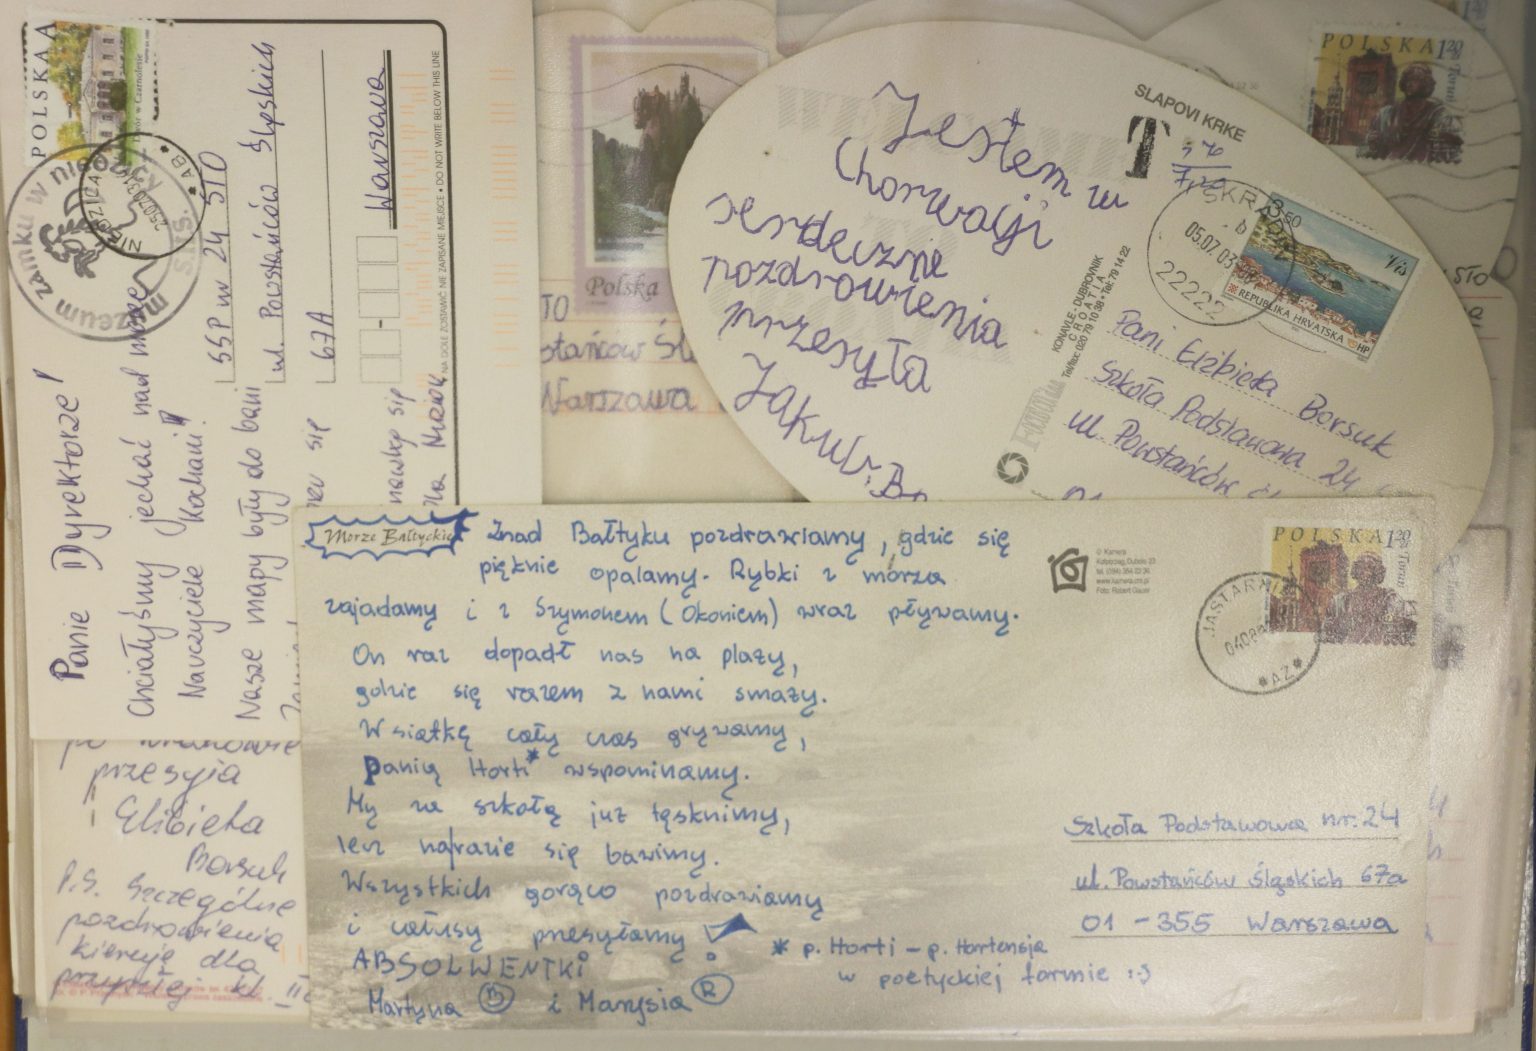 POLSKA A
Dwór w Czarnolesie
muzeum zamku w niedzicy
S.H.S.
NIEDZICA
*AB*
Panie Dyrektorze!
Chciałyśmy jechać nad morze
Nauczyciele Kochani!
Nasze mapy były do bani
SSP nr 24 STO
ul. Powstańców Śląskich
67A
Warszawa
NA DOLE ZOSTAWIĆ NIE ZAPISANE MIEJSCE • DO NOT WRITE BELOW THIS LINE
przesyła
Elżbieta
Borsuk
P.S. Szczególne
pozdrowienia
kieruję dla
przyszłej kl. II
Polska
TO
stańców Ślą
Warszawa
SLAPOVI KRKE
T
Jestem w
Chorwacji
serdeczne
pozdrowienia
przesyła
Jakub B
KONAVLE - DUBROVNIK
CROATIA
Tel/fax: 020 79 10 98 • Tel: 79 14 22
SKRADIN
05.07.03
22222
3,50
Vis
REPUBLIKA HRVATSKA
HP
Pani Elżbieta Borsuk
Szkoła Podstawowa 24
ul. Powstańców
POLSKA 1,20
Toruń
STO
Morze Bałtyckie
Znad Bałtyku pozdrawiamy, gdzie się
pięknie opalamy. Rybki z morza
zajadamy i z Szymonem (Okoniem) wraz pływamy.
On raz dopadł nas na plaży,
gdzie się razem z nami smaży.
W siatkę cały czas grywamy,
Panią Horti* wspominamy.
My za szkołą już tęsknimy,
lecz na razie się bawimy.
Wszystkich gorąco pozdrawiamy
i całusy przesyłamy!
ABSOLWENTKI
Martyna B i Marysia R
* p. Horti - p. Hortensja
w poetyckiej formie :)
© Kamera
www.kamera.cm.pl
Foto: Robert Gauer
POLSKA 1,20
Toruń
JASTARNIA
*AZ*
Szkoła Podstawowa nr. 24
ul. Powstańców Śląskich 67a
01-355 Warszawa